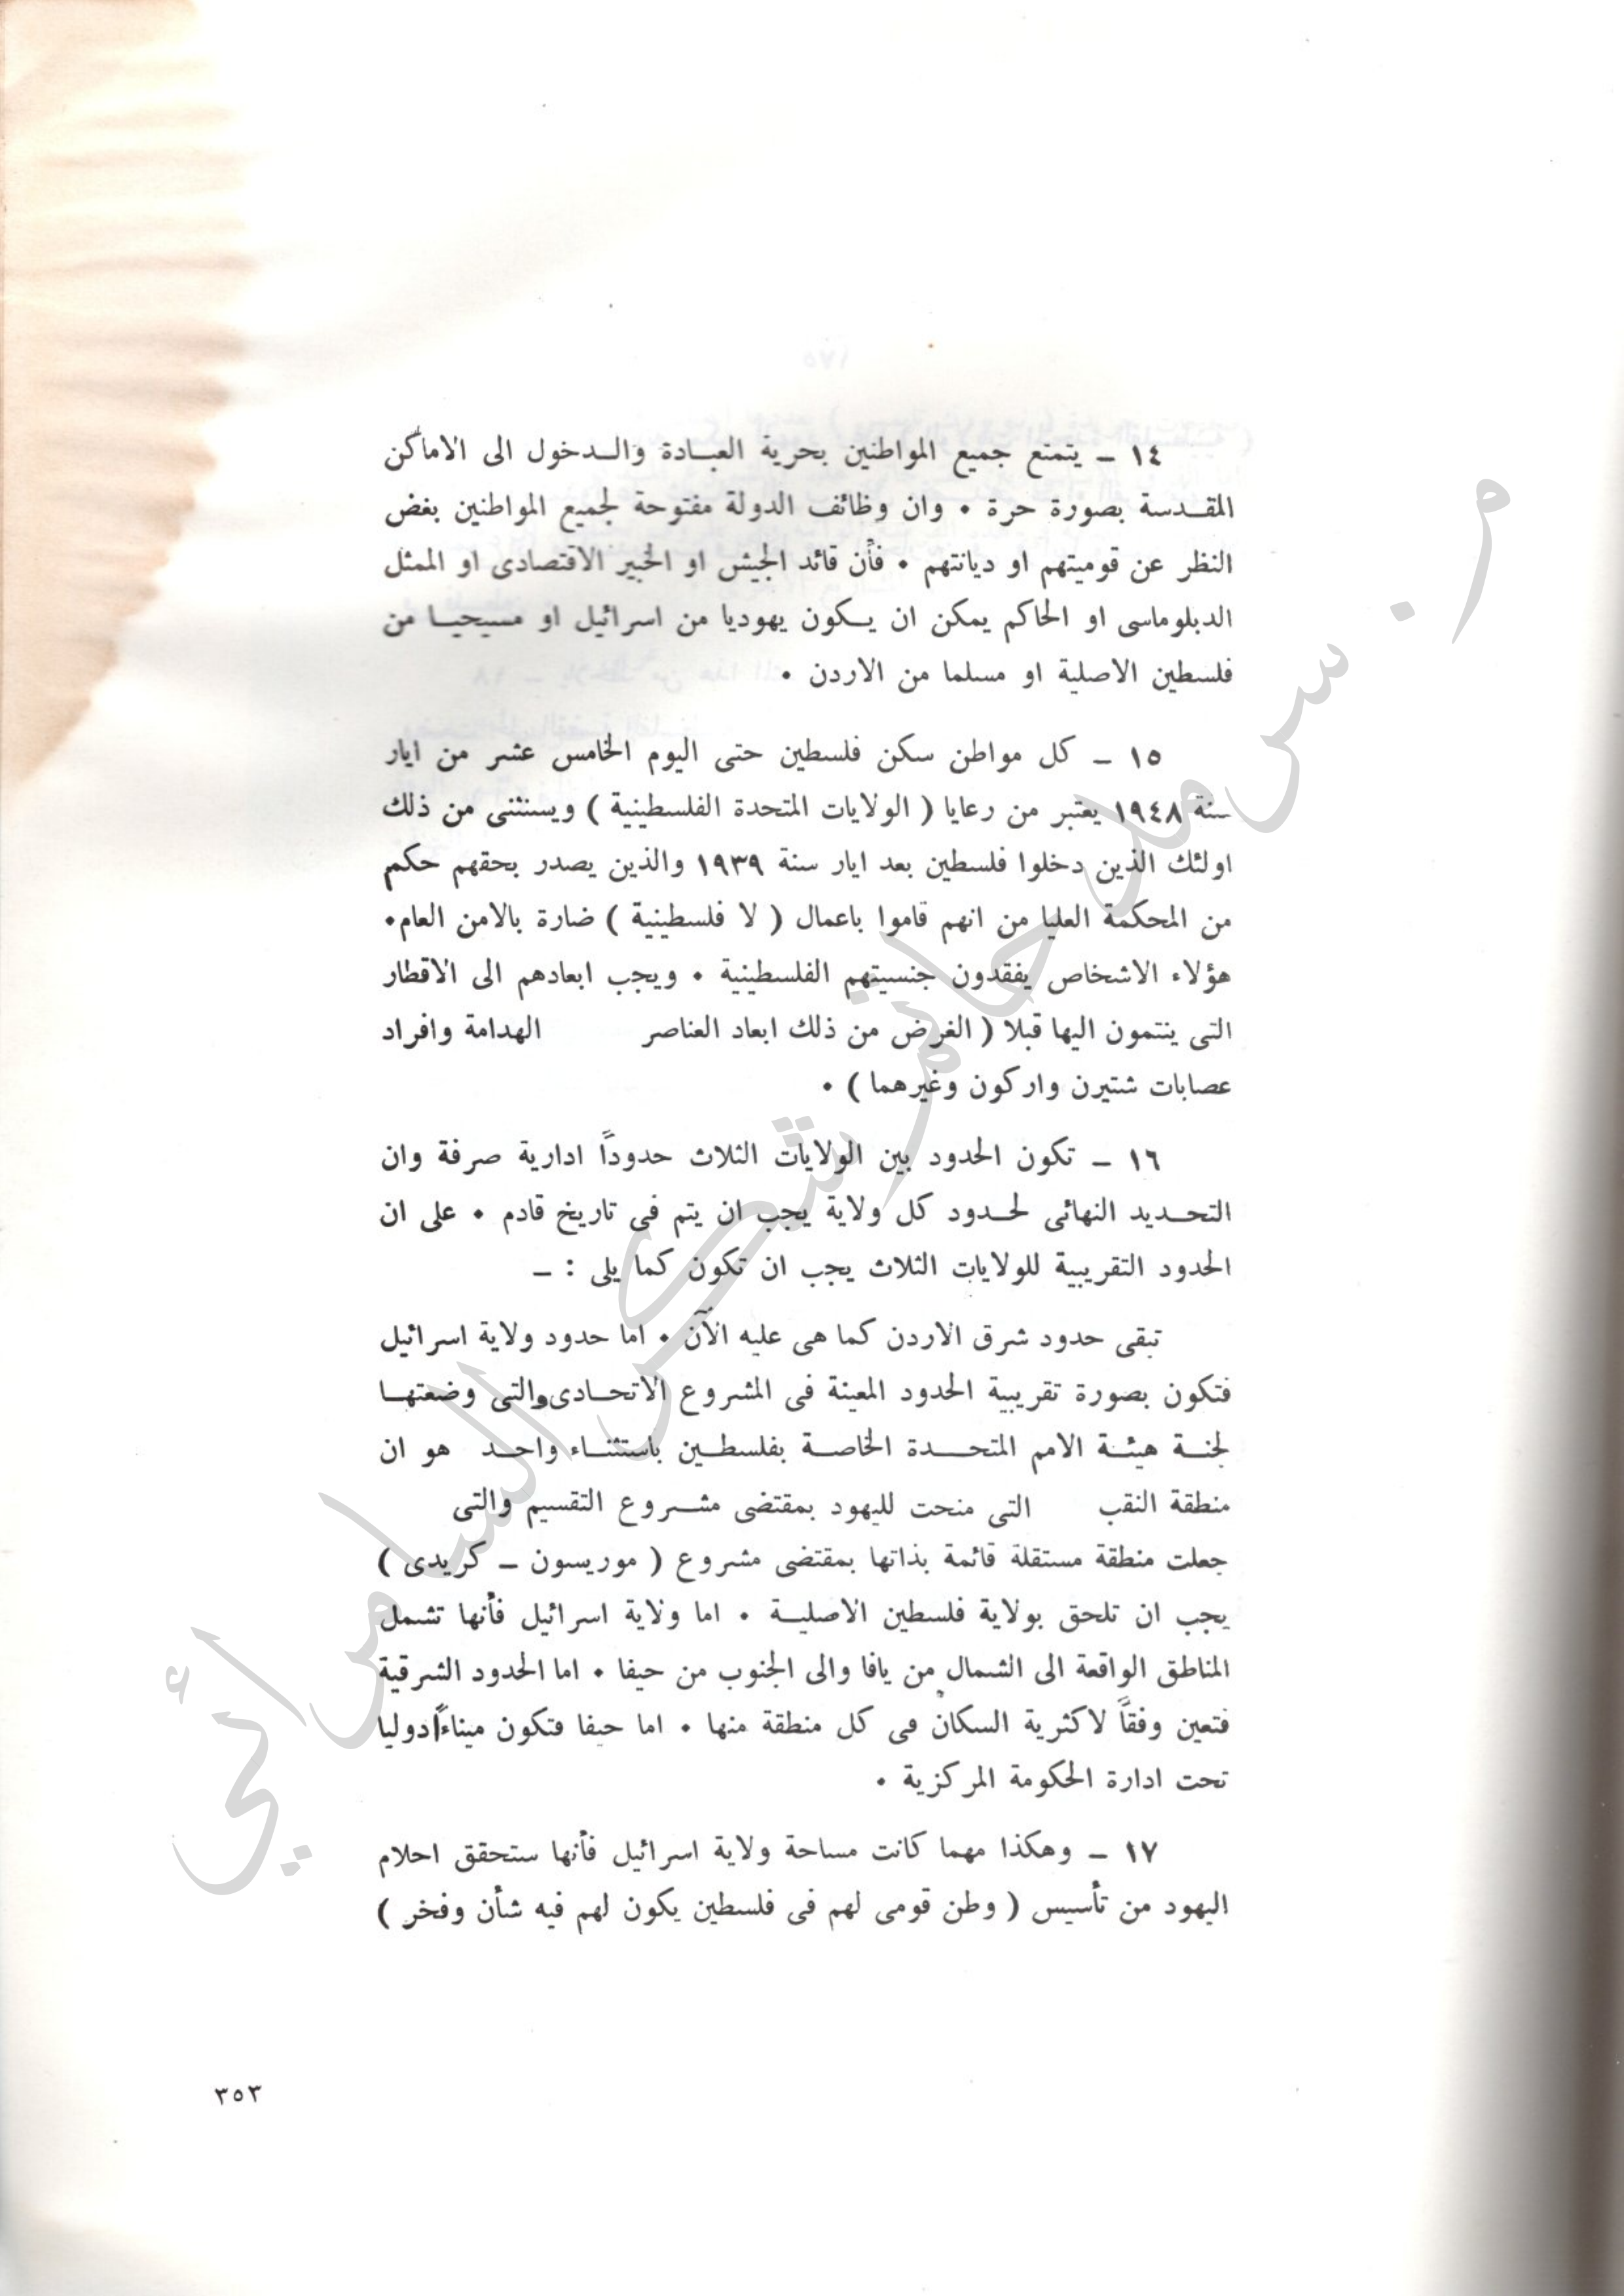 ١٤ ـ يتمتع جميع المواطنين بحرية العبـادة والـدخول الى الاماكن
المقـدسة بصورة حرة ٠ وان وظائف الدولة مفتوحة لجميع المواطنين بغض
النظر عن قوميتهم او ديانتهم ٠ فأن قائد الجيش او الخبير الاقتصادى او الممثل
الدبلوماسى او الحاكم يمكن ان يـكون يهوديا من اسرائيل او مسيحيـا من
فلسطين الاصلية او مسلما من الاردن ٠
١٥ ـ كل مواطن سكن فلسطين حتى اليوم الخامس عشر من ايار
سنة ١٩٤٨ يعتبر من رعايا ( الولايات المتحدة الفلسطينية ) ويستثنى من ذلك
اولئك الذين دخلوا فلسطين بعد ايار سنة ١٩٣٩ والذين يصدر بحقهم حكم
من المحكمة العليا من انهم قاموا باعمال ( لا فلسطينية ) ضارة بالامن العام٠
هؤلاء الاشخاص يفقدون جنسيتهم الفلسطينية ٠ ويجب ابعادهم الى الاقطار
التى ينتمون اليها قبلا ( الغرض من ذلك ابعاد العناصر الهدامة وافراد
عصابات شتيرن واركون وغيرهما ) ٠
١٦ ـ تكون الحدود بين الولايات الثلاث حدوداً ادارية صرفة وان
التحـديد النهائى لحـدود كل ولاية يجب ان يتم فى تاريخ قادم ٠ على ان
الحدود التقريبية للولايات الثلاث يجب ان تكون كما يلى : ـ
تبقى حدود شرق الاردن كما هى عليه الآن ٠ اما حدود ولاية اسرائيل
فتكون بصورة تقريبية الحدود المعينة فى المشروع الاتحـادى والتى وضعتهـا
لجنـة هيئـة الامم المتحـدة الخاصـة بفلسطـين باستثنـاء واحـد هو ان
منطقة النقب التى منحت لليهود بمقتضى مشـروع التقسيم والتى
جعلت منطقة مستقلة قائمة بذاتها بمقتضى مشروع ( موريسون ـ كريدى )
يجب ان تلحق بولاية فلسطين الاصليـة ٠ اما ولاية اسرائيل فأنها تشمل
المناطق الواقعة الى الشمال من يافا والى الجنوب من حيفا ٠ اما الحدود الشرقية
فتعين وفقاً لاكثرية السكان فى كل منطقة منها ٠ اما حيفا فتكون ميناءاً دوليا
تحت ادارة الحكومة المركزية ٠
١٧ ـ وهكذا مهما كانت مساحة ولاية اسرائيل فأنها ستحقق احلام
اليهود من تأسيس ( وطن قومى لهم فى فلسطين يكون لهم فيه شأن وفخر )
٣٥٣
م. سرمد حاتم شكر السامرائي